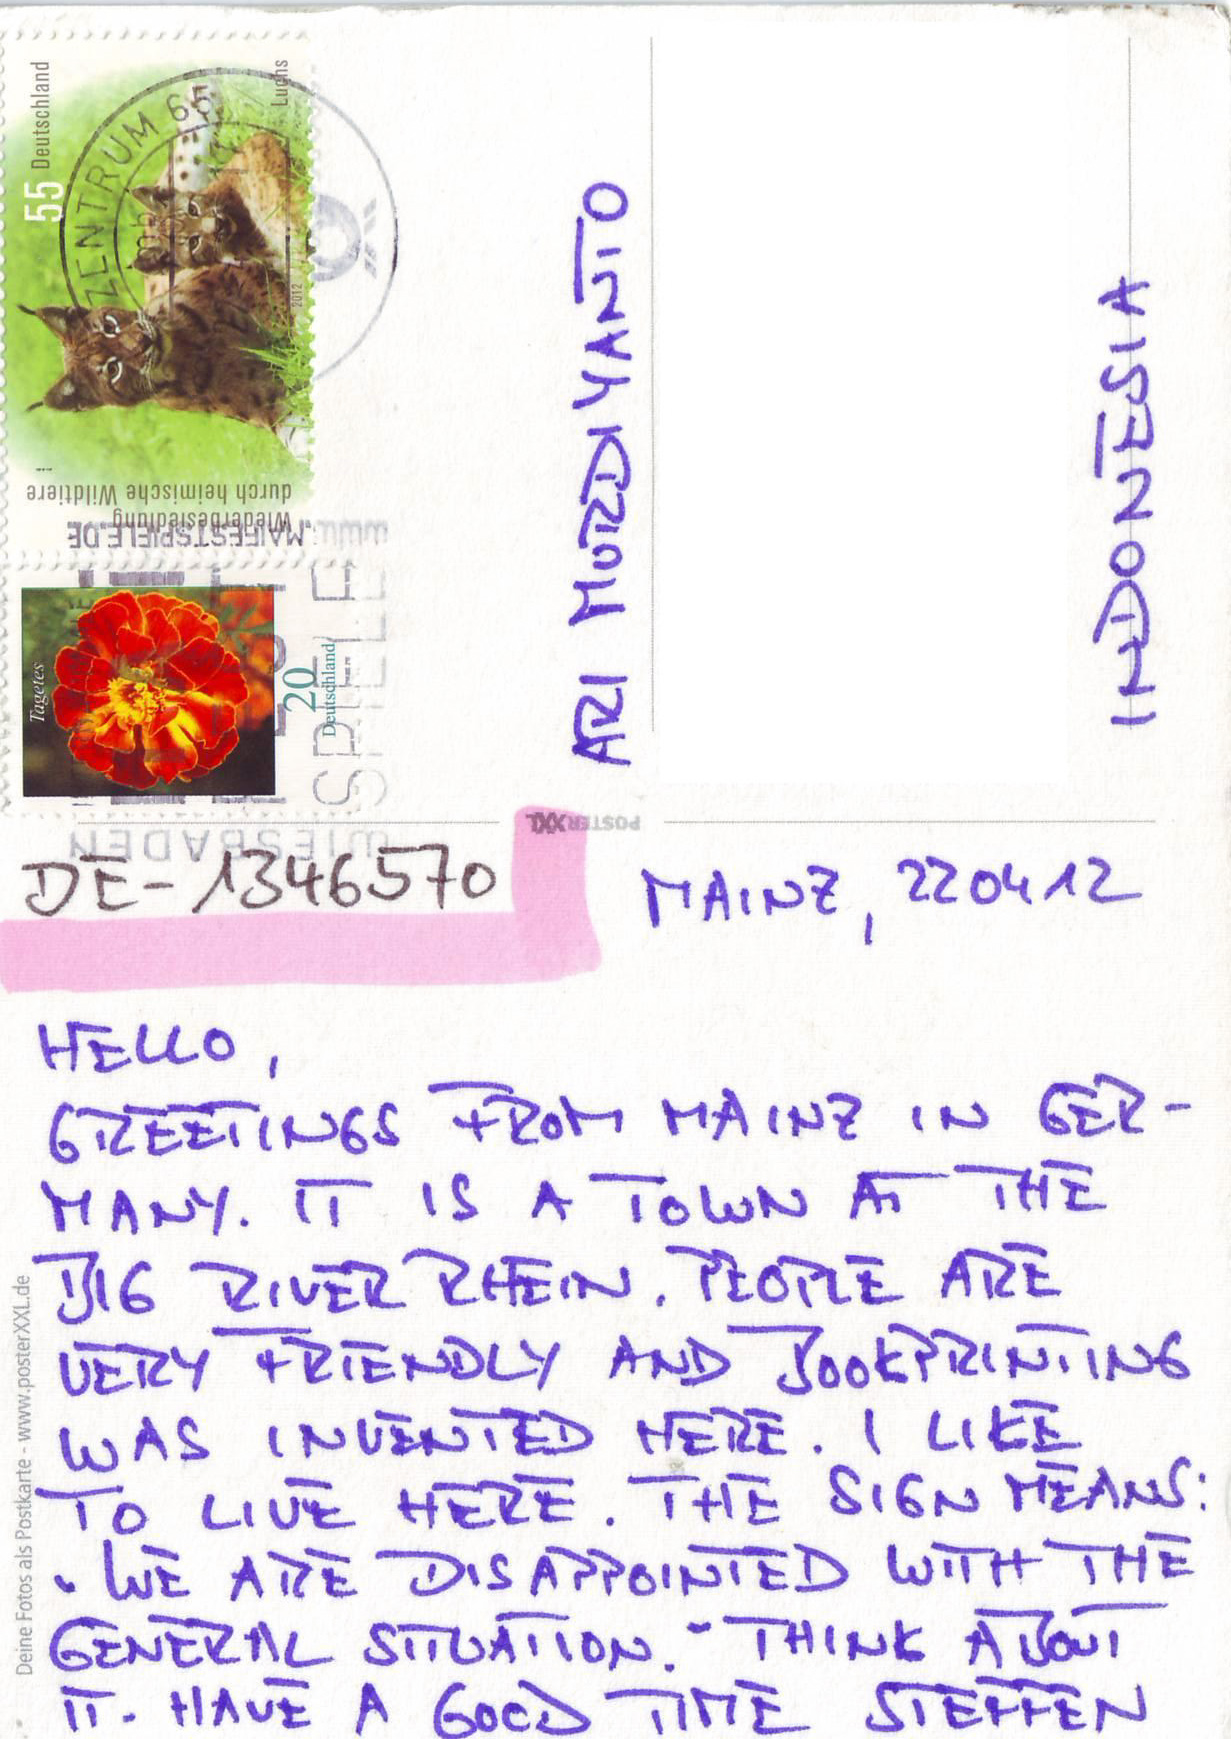 Deutschland
55
Luchs
2012
Wiederbesiedlung
durch heimische Wildtiere
ZENTRUM 65
MAIFESTSPIELE.DE
Tagetes
20
Deutschland
SPIELE
WIESBADEN
ARI MURDIYANTO
INDONESIA
POSTERXXL
DE-1346570
MAINZ, 220412
HELLO,
GREETINGS FROM MAINZ IN GER-
MANY. IT IS A TOWN AT THE
BIG RIVER RHEIN. PEOPLE ARE
VERY FRIENDLY AND BOOKPRINTING
WAS INVENTED HERE. I LIKE
TO LIVE HERE. THE SIGN MEANS:
"WE ARE DISAPPOINTED WITH THE
GENERAL SITUATION." THINK ABOUT
IT. HAVE A GOOD TIME STEFFEN
Deine Fotos als Postkarte - www.posterXXL.de